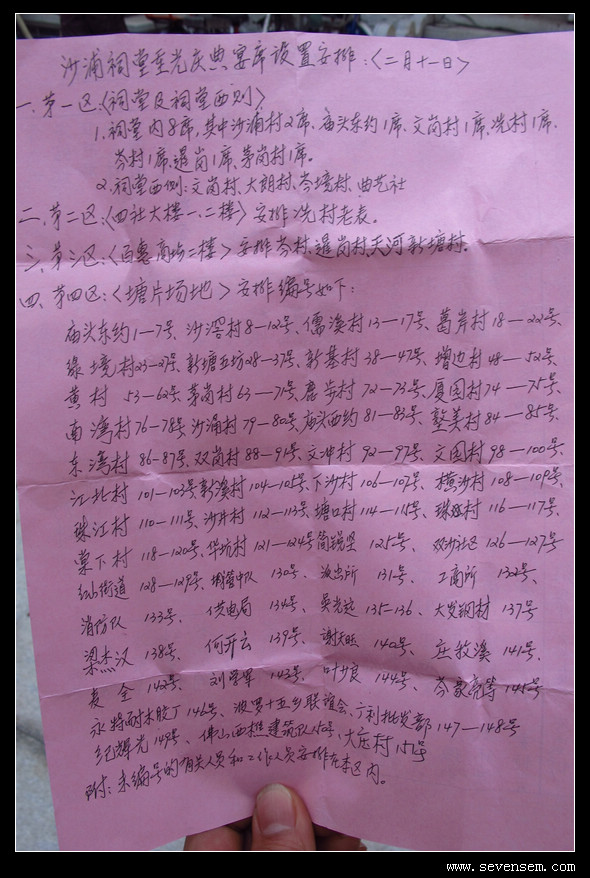 沙浦祠堂重光庆典宴席设置安排：〈二月十一日〉
一.第一区:〈祠堂及祠堂西则〉
1.祠堂内8席,其中沙浦村2席、庙头东约1席、文岗村1席、冼村1席、
岑村1席、暹岗1席、茅岗村1席。
2.祠堂西侧:文岗村、大朗村、岑境村、曲艺社
二.第二区:〈四社大楼一、二楼〉安排冼村老表。
三.第三区:〈百惠商场二楼〉安排岑村、暹岗村、天河新塘村。
四.第四区:〈塘片场地〉安排编号如下:
庙头东约1—7号、沙滘村8—12号、儒溪村13—17号、葛岸村18—22号、
绿境村23—27号、新塘五坊28—37号、新基村38—47号、增边村48—52号、
黄村 53—62号、茅岗村63—71号、鹿步村72—73号、厦园村74—75号、
南湾村76—78号、沙涌村79—80号、庙头西约81—83号、墪美村84—85号、
东湾村 86—87号、双岗村88—91号、文冲村 92—97号、文园村98—100号、
江北村 101—103号、新溪村104—105号、下沙村106—107号、横沙村108—109号、
珠江村 110—111号、沙井村112—113号、塘口村114—115号、珠村116—117号、
棠下村 118—120号、华坑村121—124号、简锐坚 125号、双沙社区126—127号
街道 128—129号、城管中队 130号、派出所 131号、工商所 132号、
消防队 133号、供电局 134号、吴光达135—136、大发钢材137号
梁杰汉 138号、何开云 139号、谢天旺 140号、庄牧溪 141号、
麦全 142号、刘学军 143号、叶少良 144号、岑亮等145号
永特耐木胶丁146号、波罗十五乡联谊会、广利批发部147—148号
纪辉光149号、佛山西樵建筑队150号、大庄村151号
附:未编号的有关人员和工作人员安排在本区内。
www.sevensem.com